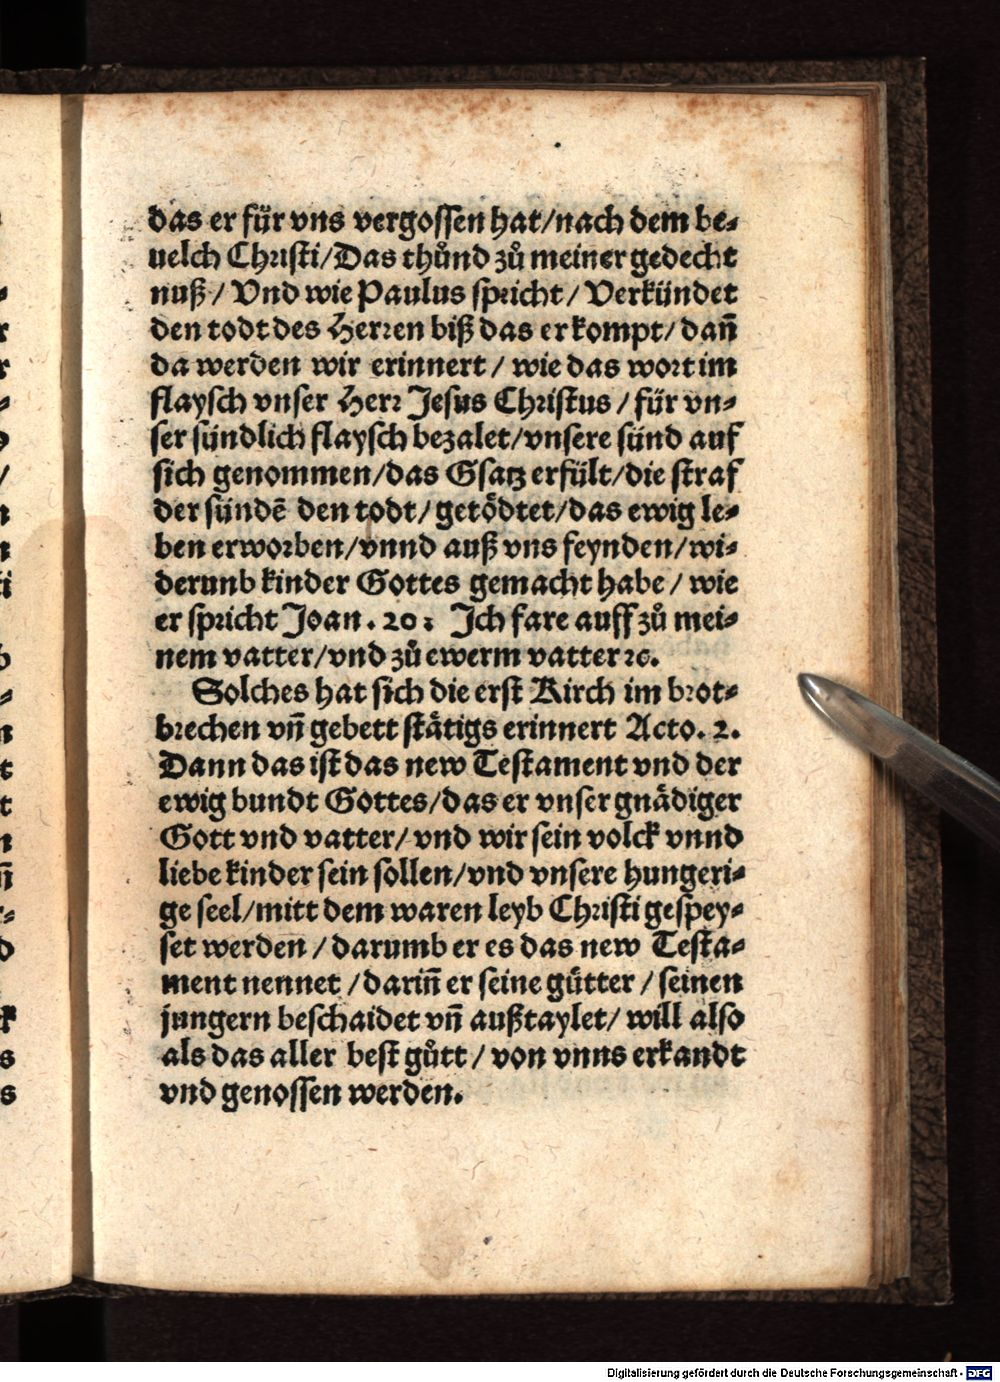 das er für vns vergossen hat/nach dem be⸗
uelch Christi/Das thůnd zů meiner gedecht
nuß/Vnd wie Paulus spricht/Verkündet
den todt des Herren biß das er kompt/dañ
da werden wir erinnert/wie das wort im
flaysch vnser Herr Jesus Christus/für vn⸗
ser sündlich flaysch bezalet/vnsere sünd auf
sich genommen/das Gsatz erfült/die straf
der sündē den todt/getödtet/das ewig le⸗
ben erworben/vnnd auß vns feynden/wi⸗
derunb kinder Gottes gemacht habe/wie
er spricht Joan. 20: Ich fare auff zů mei⸗
nem vatter/vnd zů ewerm vatter ꝛc.
Solches hat sich die erst Kirch im brot⸗
brechen vñ gebett stätigs erinnert Acto. 2.
Dann das ist das new Testament vnd der
ewig bundt Gottes/das er vnser gnädiger
Gott vnd vatter/vnd wir sein volck vnnd
liebe kinder sein sollen/vnd vnsere hungeri⸗
ge seel/mitt dem waren leyb Christi gespey⸗
set werden/darumb er es das new Testa⸗
ment nennet/dariñ er seine gütter/seinen
jungern beschaidet vñ außtaylet/will also
als das aller best gůtt/von vnns erkandt
vnd genossen werden.
Digitalisierung gefördert durch die Deutsche Forschungsgemeinschaft - DFG